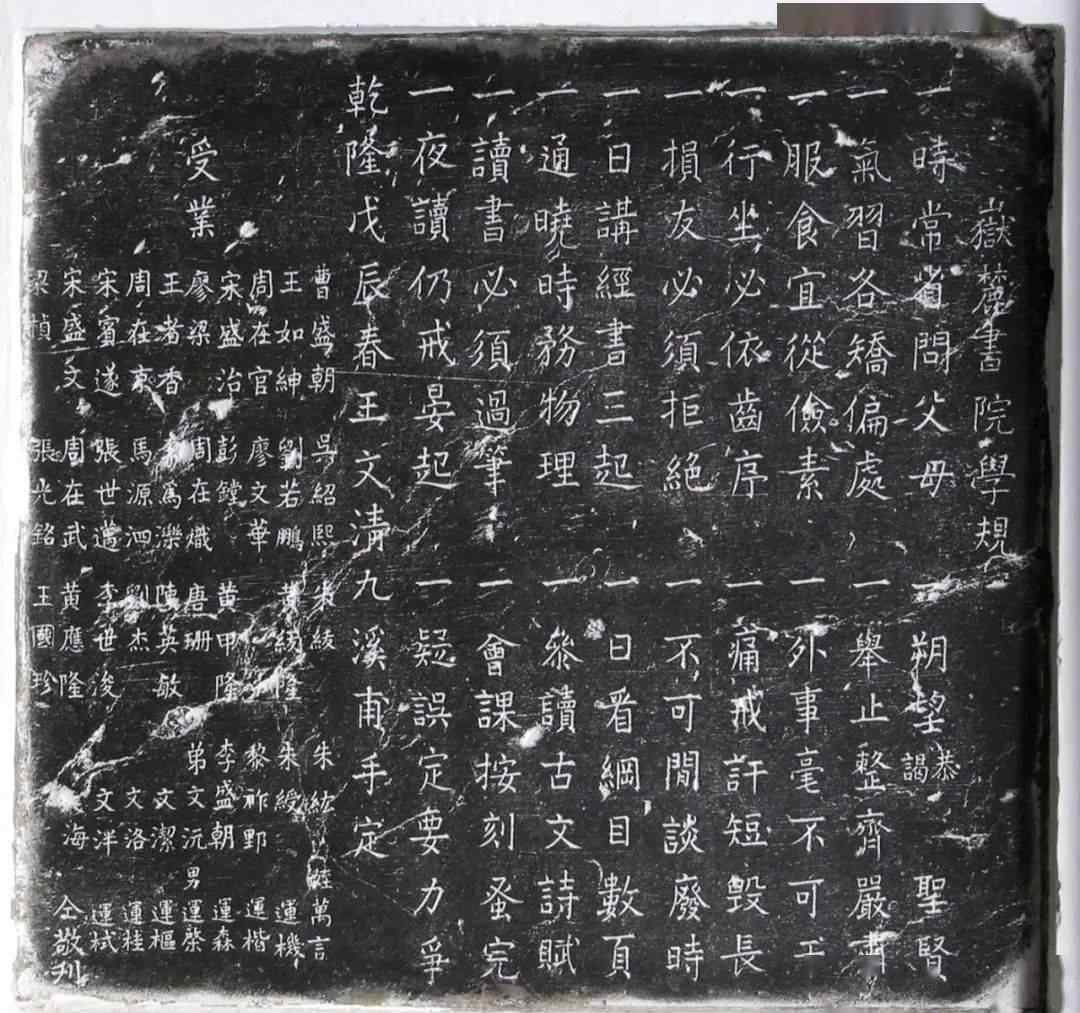 嶽麓書院學規
一時常省問父母 一朔望恭謁聖賢
一氣習各矯偏處 一舉止整齊嚴肅
一服食宜從儉素 一外事毫不可工
一行坐必依齒序 一痛戒訐短毀長
一損友必須拒絕 一不可閒談廢時
一日講經書三起 一日看綱目數頁
一通曉時務物理 一參讀古文詩賦
一讀書必須過筆 一會課按刻蚤完
一夜讀仍戒晏起 一疑誤定要力爭
乾隆戊辰春王文清九溪甫手定
受業
曹盛朝 吳紹熙 朱綾 朱紘 萬言
王如紳 劉若鵬 黃綾隆 朱綬 運機
周在官 廖文華 黎祚野 運楷
宋盛治 彭鏜 黃甲隆 李盛朝 運森
廖梁 周在熾 唐珊 弟文沅 男運棨
王者香 為濼 陳英敏 文潔 運樞
周在 馬源泗 劉杰 文洛 運桂
宋賓遂 張世邁 李世浚 文洋 運栻
宋盛文 周在武 黃應隆 文海 仝敬刊
梁楨 張光銘 王國珍